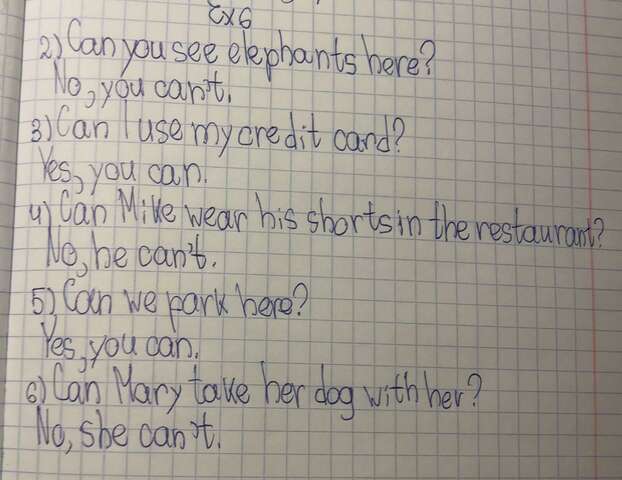 Ex6
2) Can you see elephants here?
No, you can't.
3) Can I use my credit card?
Yes, you can.
4) Can Mike wear his shorts in the restaurant?
No, he can't.
5) Can we park here?
Yes, you can.
6) Can Mary take her dog with her?
No, she can't.